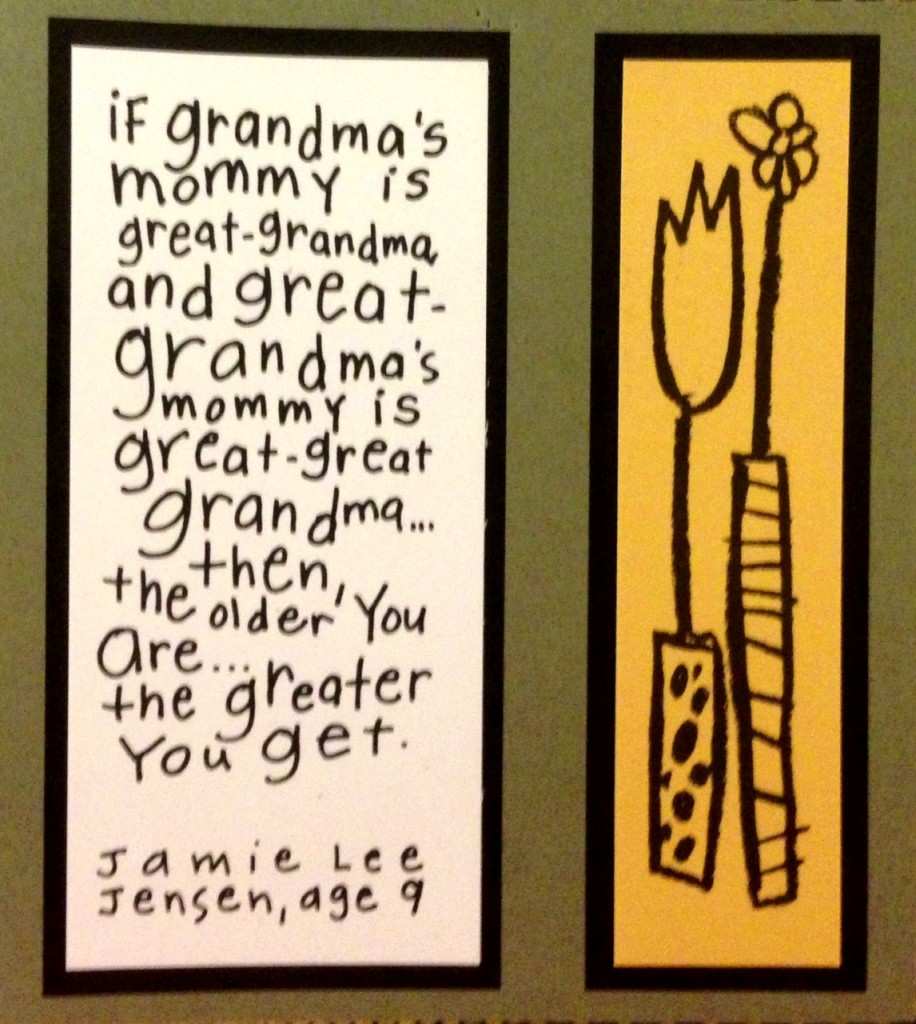 if grandma's
mommy is
great-grandma
and great-
grandma's
mommy is
great-great
grandma...
then,
the older you
are...
the greater
you get.
Jamie Lee
Jensen, age 9